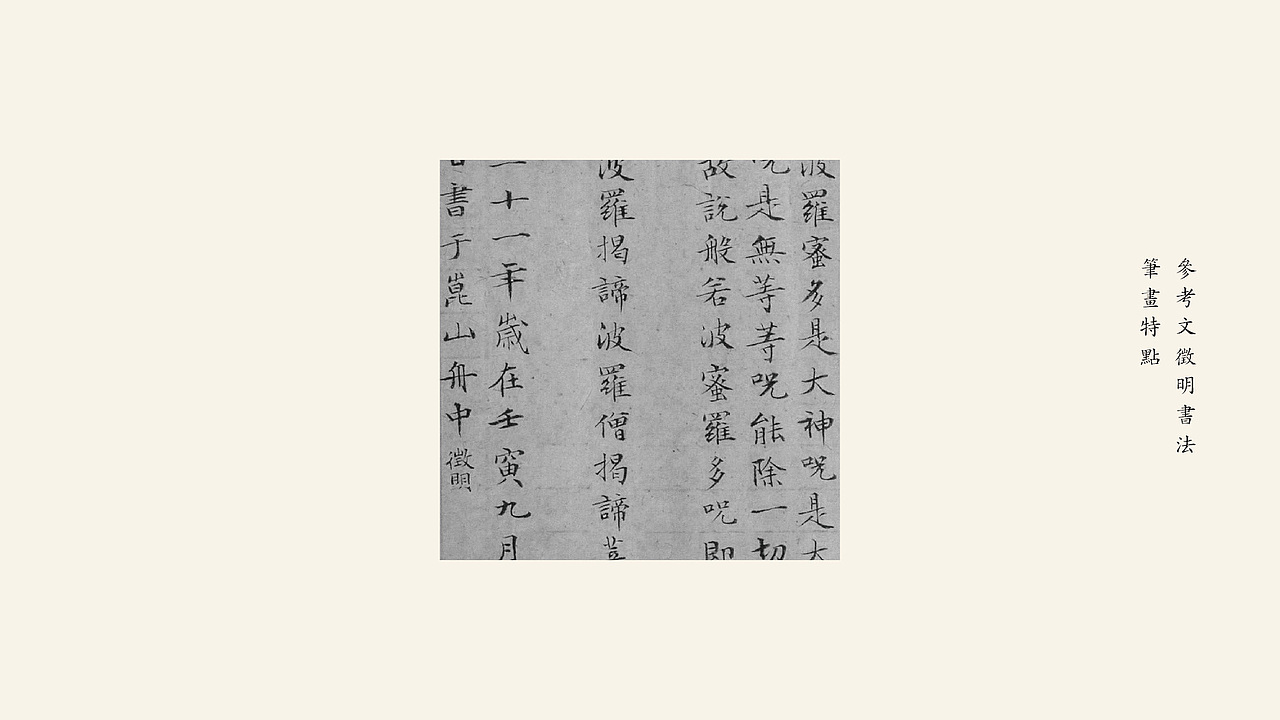 參考文徵明書法
筆畫特點
波羅蜜多是大神呪是大
呪是無等等呪能除一切
故說般若波蜜羅多呪即
波羅揭諦波羅僧揭諦菩
二十一年歲在壬寅九月
日書于崑山舟中徵明